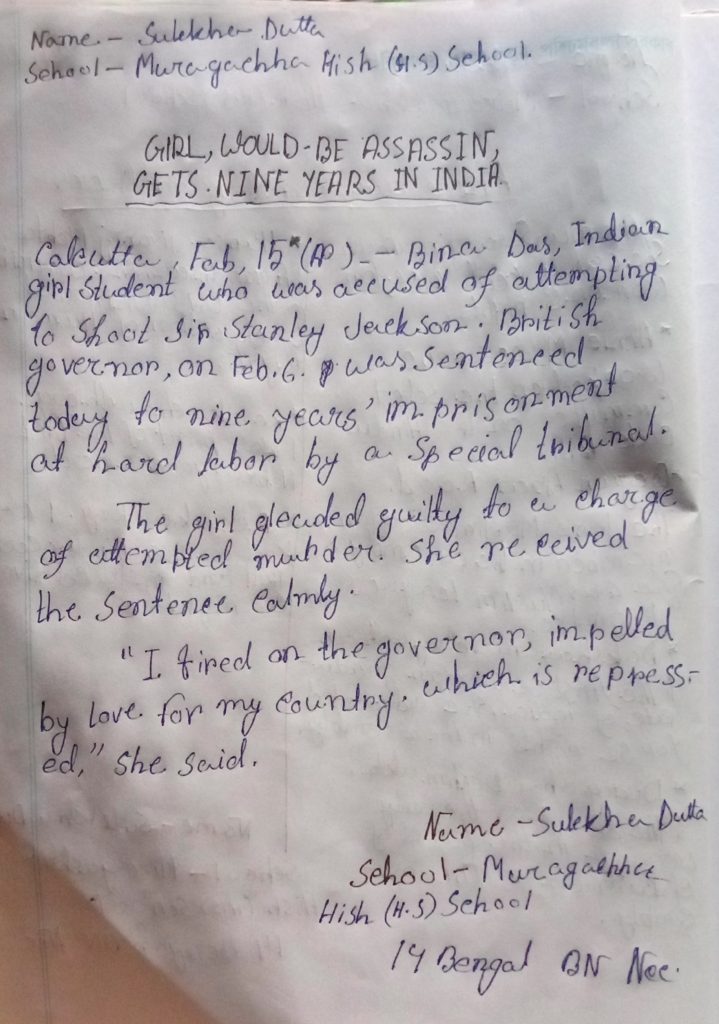 Name - Sulekha Dutta
School - Muragachha Hish (H.S) School.
GIRL, WOULD-BE ASSASSIN,
GETS. NINE YEARS IN INDIA.
Calcutta, Feb, 15 (AP) - - Bina Das, Indian
girl student who was accused of attempting
to shoot sir Stanley Jackson. British
governor, on Feb. 6. was sentenced
today to nine years' imprisonment
at hard labor by a special tribunal.
The girl gleaded guilty to a charge
of attempted murder. She received
the sentence calmly.
"I fired on the governor, impelled
by love for my country. which is repress-
ed," she said.
Name - Sulekha Dutta
School - Muragachha
Hish (H.S) School
14 Bengal BN Ncc.